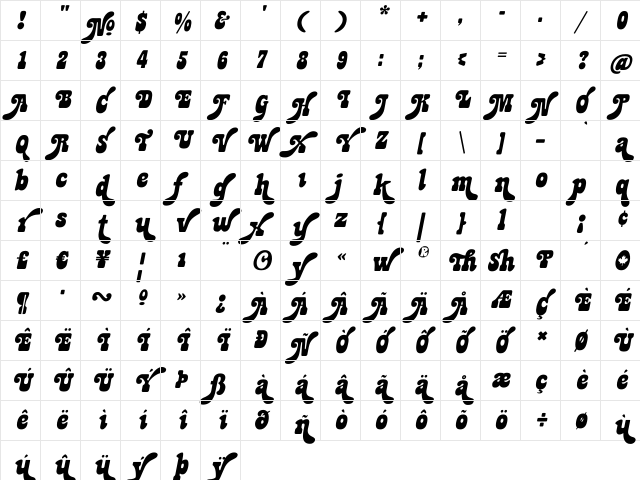 ! " № $ % & ' ( ) * + , - . / 0
1 2 3 4 5 6 7 8 9 : ; < = > ? @
A B C D E F G H I J K L M N O P
Q R S T U V W X Y Z [ \ ] - ` a
b c d e f g h i j k l m n o p q
r s t u v w x y z { | } l ¡ ¢
£ € ¥ ¦ ı ¨ © y « w ® Th Sh P ´ O
¶ · ~ º » ¿ À Á Â Ã Ä Å Æ Ç È É
Ê Ë Ì Í Î Ï Ð Ñ Ò Ó Ô Õ Ö × Ø Ù
Ú Û Ü Ý Þ ß à á â ã ä å æ ç è é
ê ë ì í î ï ð ñ ò ó ô õ ö ÷ ø ù
ú û ü ý þ ÿ